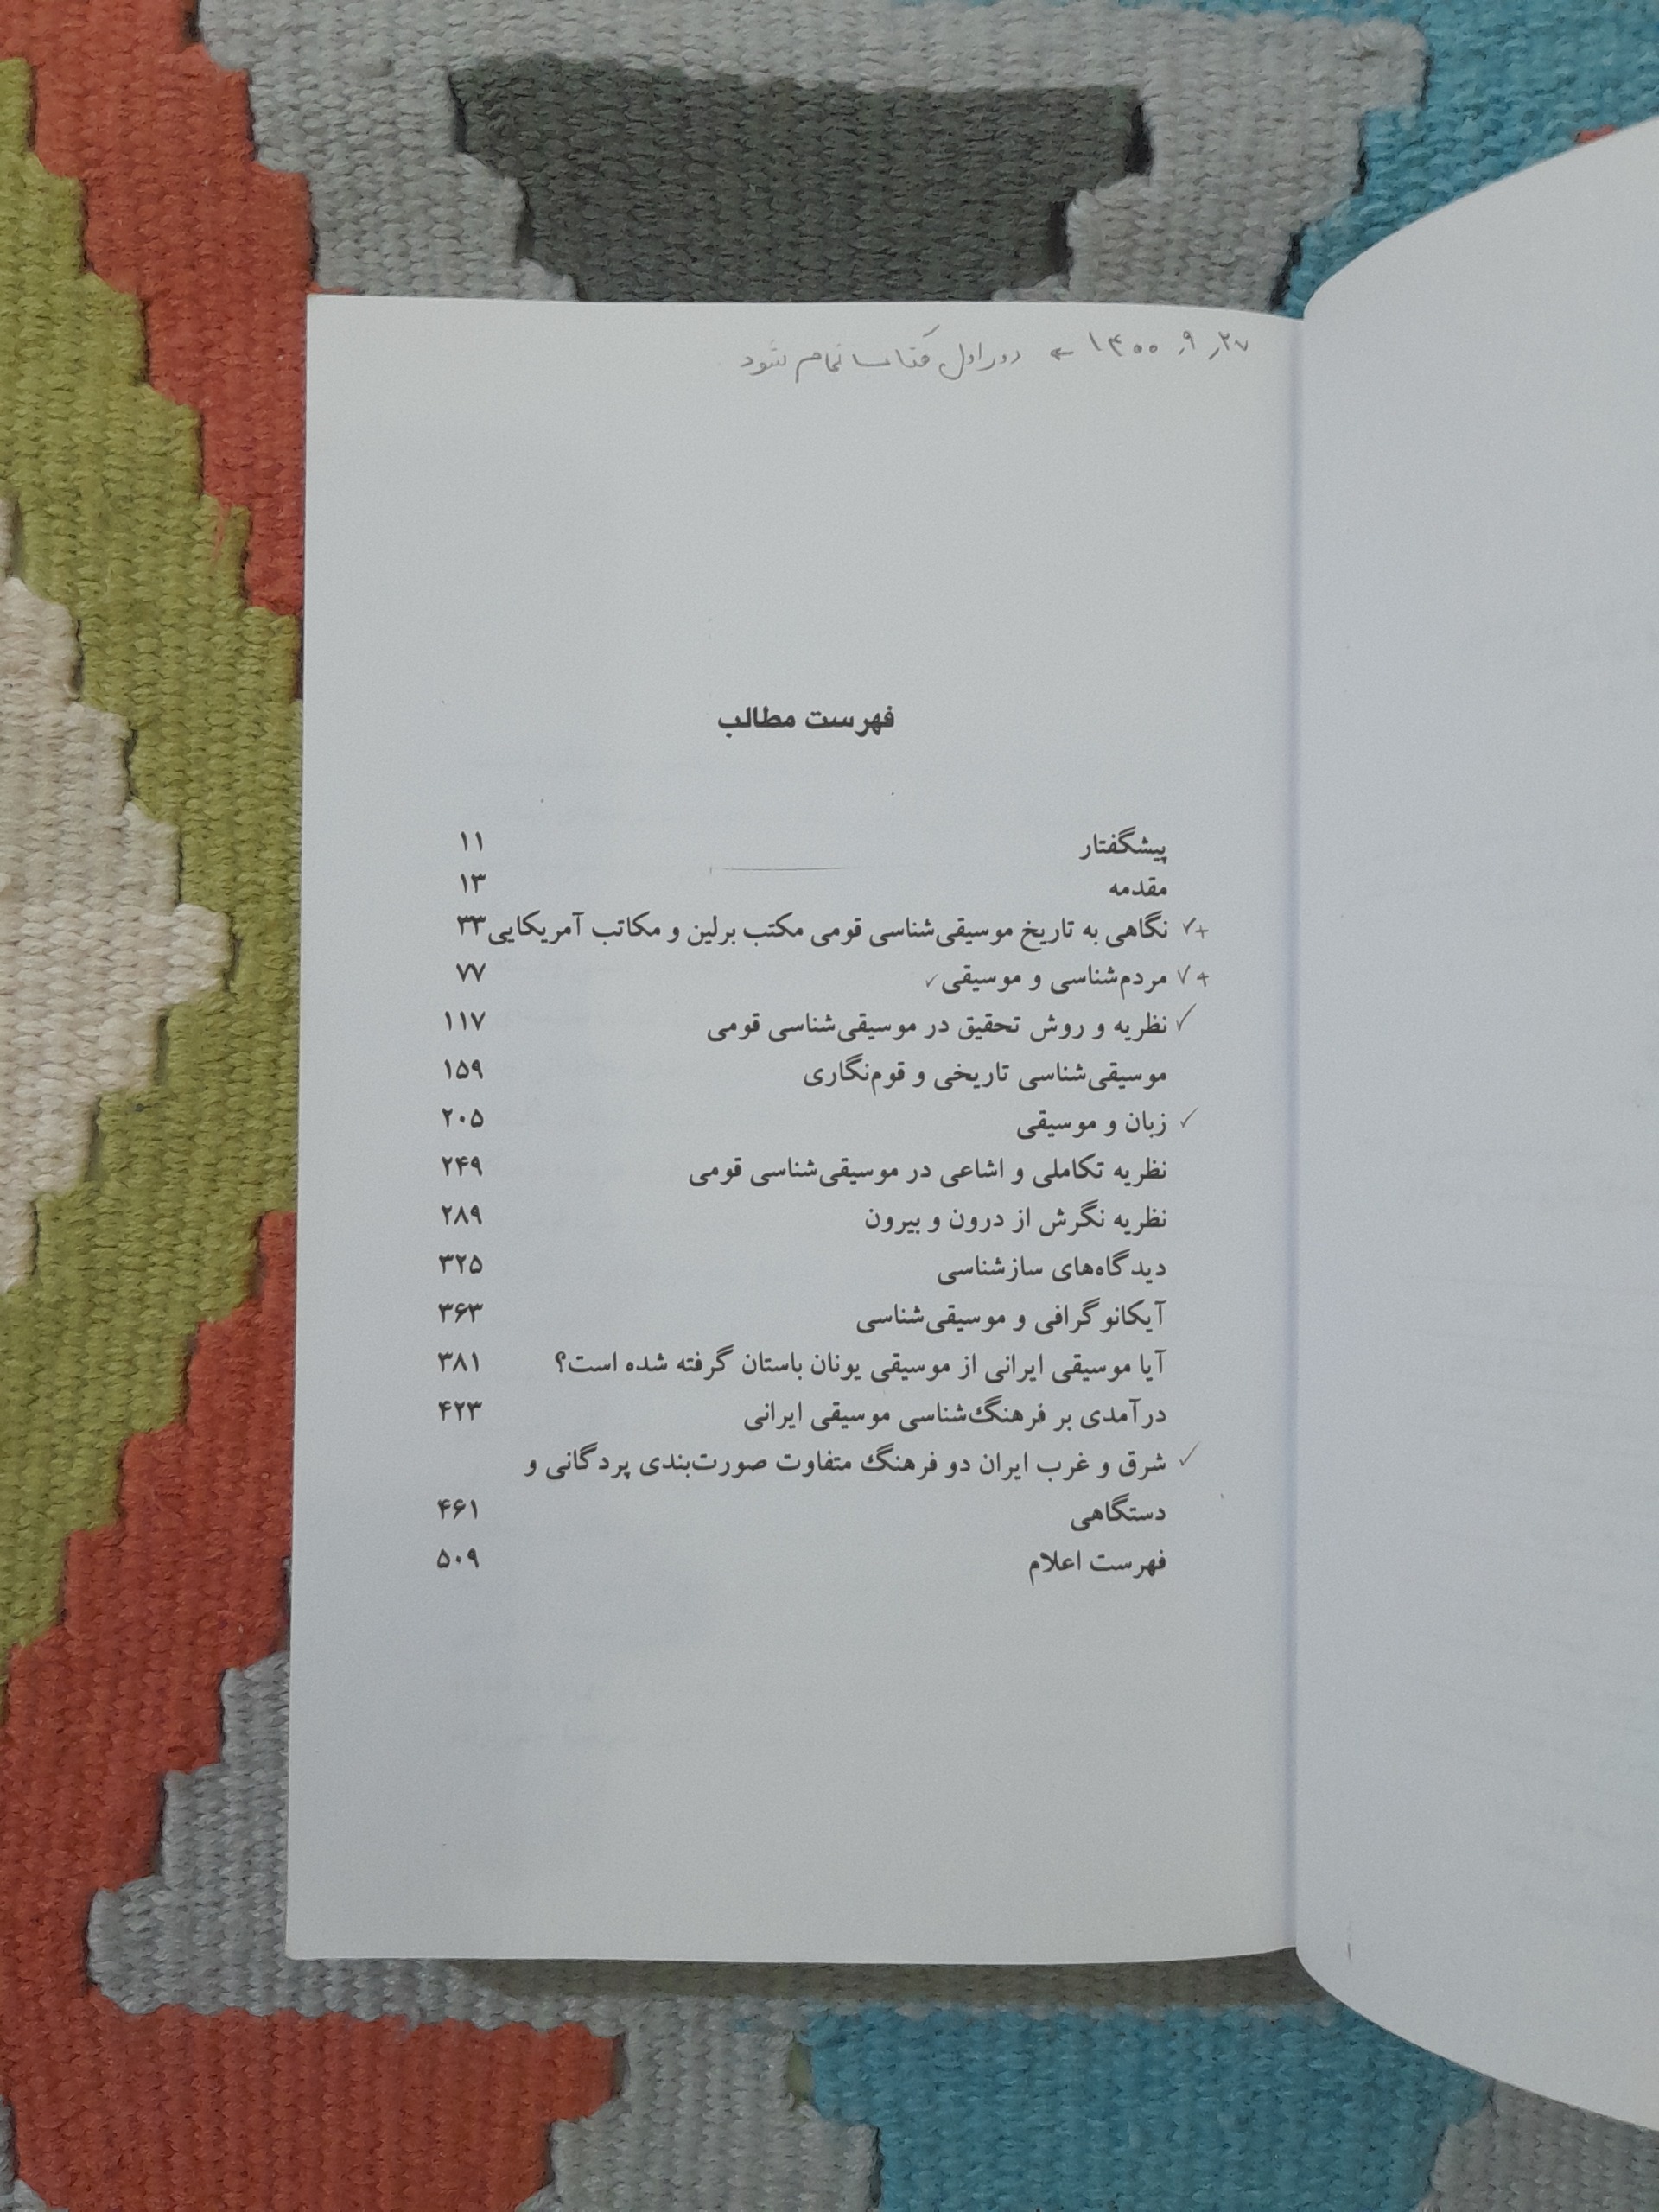 ۱۴۰۰٫۹٫۲۷ ← دور اول تمام شود
فهرست مطالب
پیشگفتار ۱۱
مقدمه ۱۳
+✓ نگاهی به تاریخ موسیقی‌شناسی قومی مکتب برلین و مکاتب آمریکایی ۳۳
+✓ مردم‌شناسی و موسیقی ✓ ۷۷
✓ نظریه و روش تحقیق در موسیقی‌شناسی قومی ۱۱۷
موسیقی‌شناسی تاریخی و قوم‌نگاری ۱۵۹
✓ زبان و موسیقی ۲۰۵
نظریه تکاملی و اشاعی در موسیقی‌شناسی قومی ۲۴۹
نظریه نگرش از درون و بیرون ۲۸۹
دیدگاه‌های سازشناسی ۳۲۵
آیکانوگرافی و موسیقی‌شناسی ۳۶۳
آیا موسیقی ایرانی از موسیقی یونان باستان گرفته شده است؟ ۳۸۱
درآمدی بر فرهنگ‌شناسی موسیقی ایرانی ۴۲۳
✓ شرق و غرب ایران دو فرهنگ متفاوت صورت‌بندی پردگانی و
دستگاهی ۴۶۱
فهرست اعلام ۵۰۹